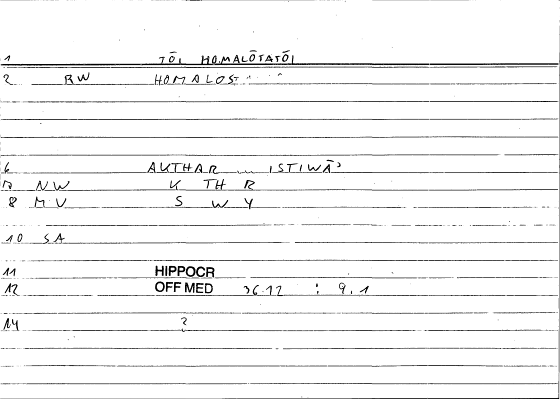 1 TŌI HOMALŌTATŌI
2 BW HOMALOS
6 AKTHAR ... ISTIWĀʾ
7 NW K TH R
8 MV S W Y
10 SA
11 HIPPOCR
12 OFF MED 36.12 : 9.1
14 ?